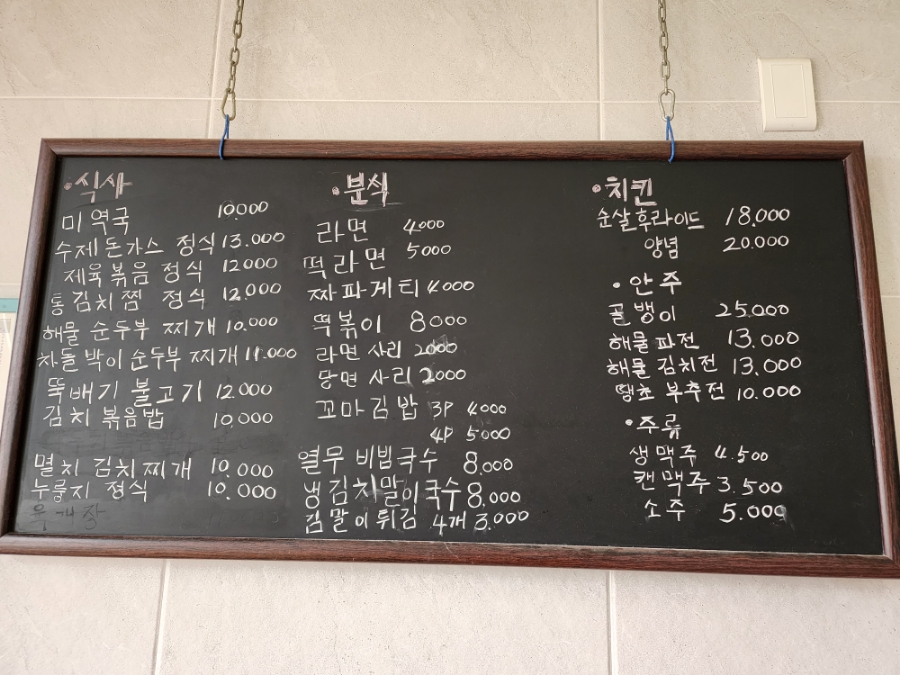 ·식사
미역국 10.000
수제돈가스 정식 13.000
제육볶음 정식 12000
통김치찜 정식 12.000
해물 순두부 찌개 10.000
차돌박이순두부 찌개 11.000
뚝배기 불고기 12000
김치 볶음밥 10,000
멸치 김치찌개 10.000
누룽지 정식 10.000
·분식
라면 4000
떡라면 5000
짜파게티 4000
떡볶이 8000
라면 사리 2000
당면 사리 2000
꼬마김밥 3P 4000
4P 5000
열무 비빔국수 8,000
냉김치말이국수 8,000
김말이튀김 4개 3,000
·치킨
순살후라이드 18,000
양념 20.000
·안주
골뱅이 25.000
해물 파전 13.000
해물 김치전 13,000
땡초 부추전 10.000
·주류
생맥주 4.500
캔맥주 3.500
소주 5.000